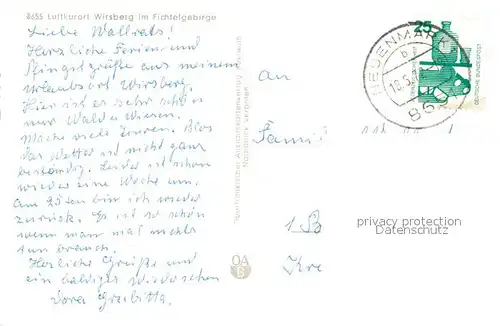 8655 Luftkurort Wirsberg im Fichtelgebirge
Liebe Wallrals!
Herzliche Ferien und
Pfingstgrüße aus meinem
Urlaubsort Wirsberg.
Hier ist es sehr schön
nur Wald u. Wiesen.
Mache viele Touren. Blos
das Wetter ist nicht ganz
beständig. Leider ist schon
wieder eine Woche um.
Am 26ten bin ich wieder
zurück. Es ist so schön
wenn man mal nichts
tun brauch.
Herzliche Grüße und
ein baldiges Wiedersehen
Dora
An
Famil
1 B
Kre
OA
B
NEUENMAR
b
18.5.
865
25
DEUTSCHE BUNDESPOST
Nachdruck verboten
privacy protection
Datenschutz